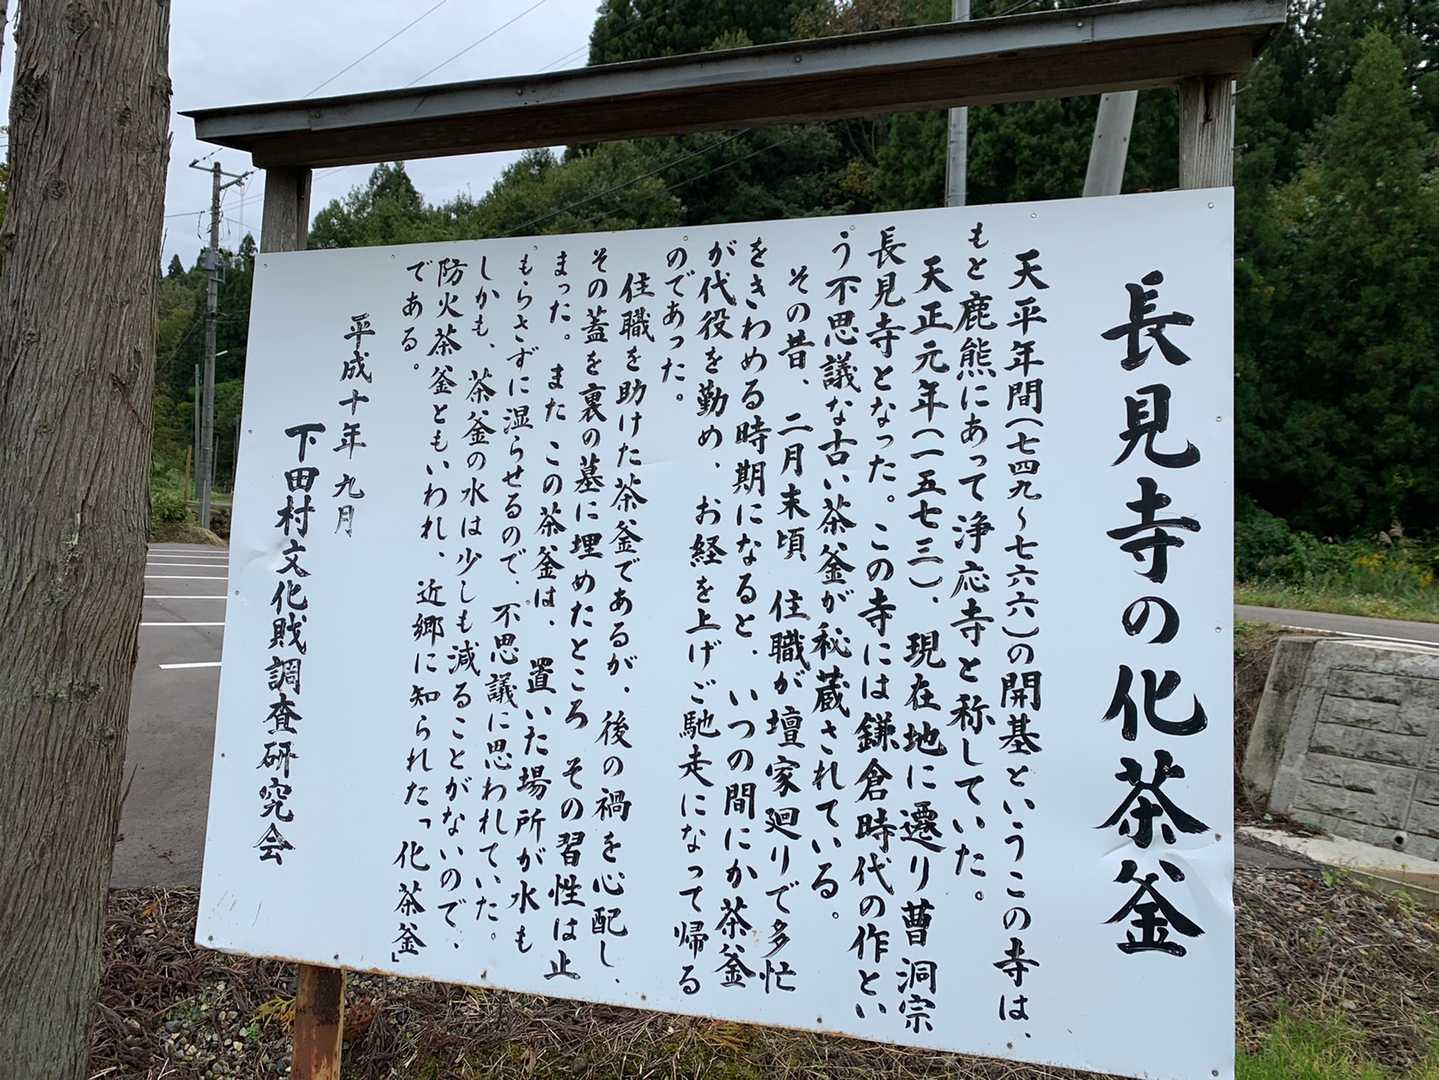 長見寺の化茶釜
天平年間(七四九~七六六)の開基というこの寺は、
もと鹿熊にあって浄応寺と称していた。
天正元年(一五七三)、現在地に遷り曹洞宗
長見寺となった。この寺には鎌倉時代の作とい
う不思議な古い茶釜が秘蔵されている。
その昔、二月末頃 住職が壇家廻りで多忙
をきわめる時期になると、いつの間にか茶釜
が代役を勤め、お経を上げご馳走になって帰る
のであった。
住職を助けた茶釜であるが、後の禍を心配し、
その蓋を裏の墓に埋めたところ その習性は止
まった。また この茶釜は、置いた場所が水も
もらさずに湿らせるので、不思議に思われていた。
しかも、茶釜の水は少しも減ることがないので、
防火茶釜ともいわれ、近郷に知られた「化茶釜」
である。
平成十年 九月
下田村文化財調査研究会